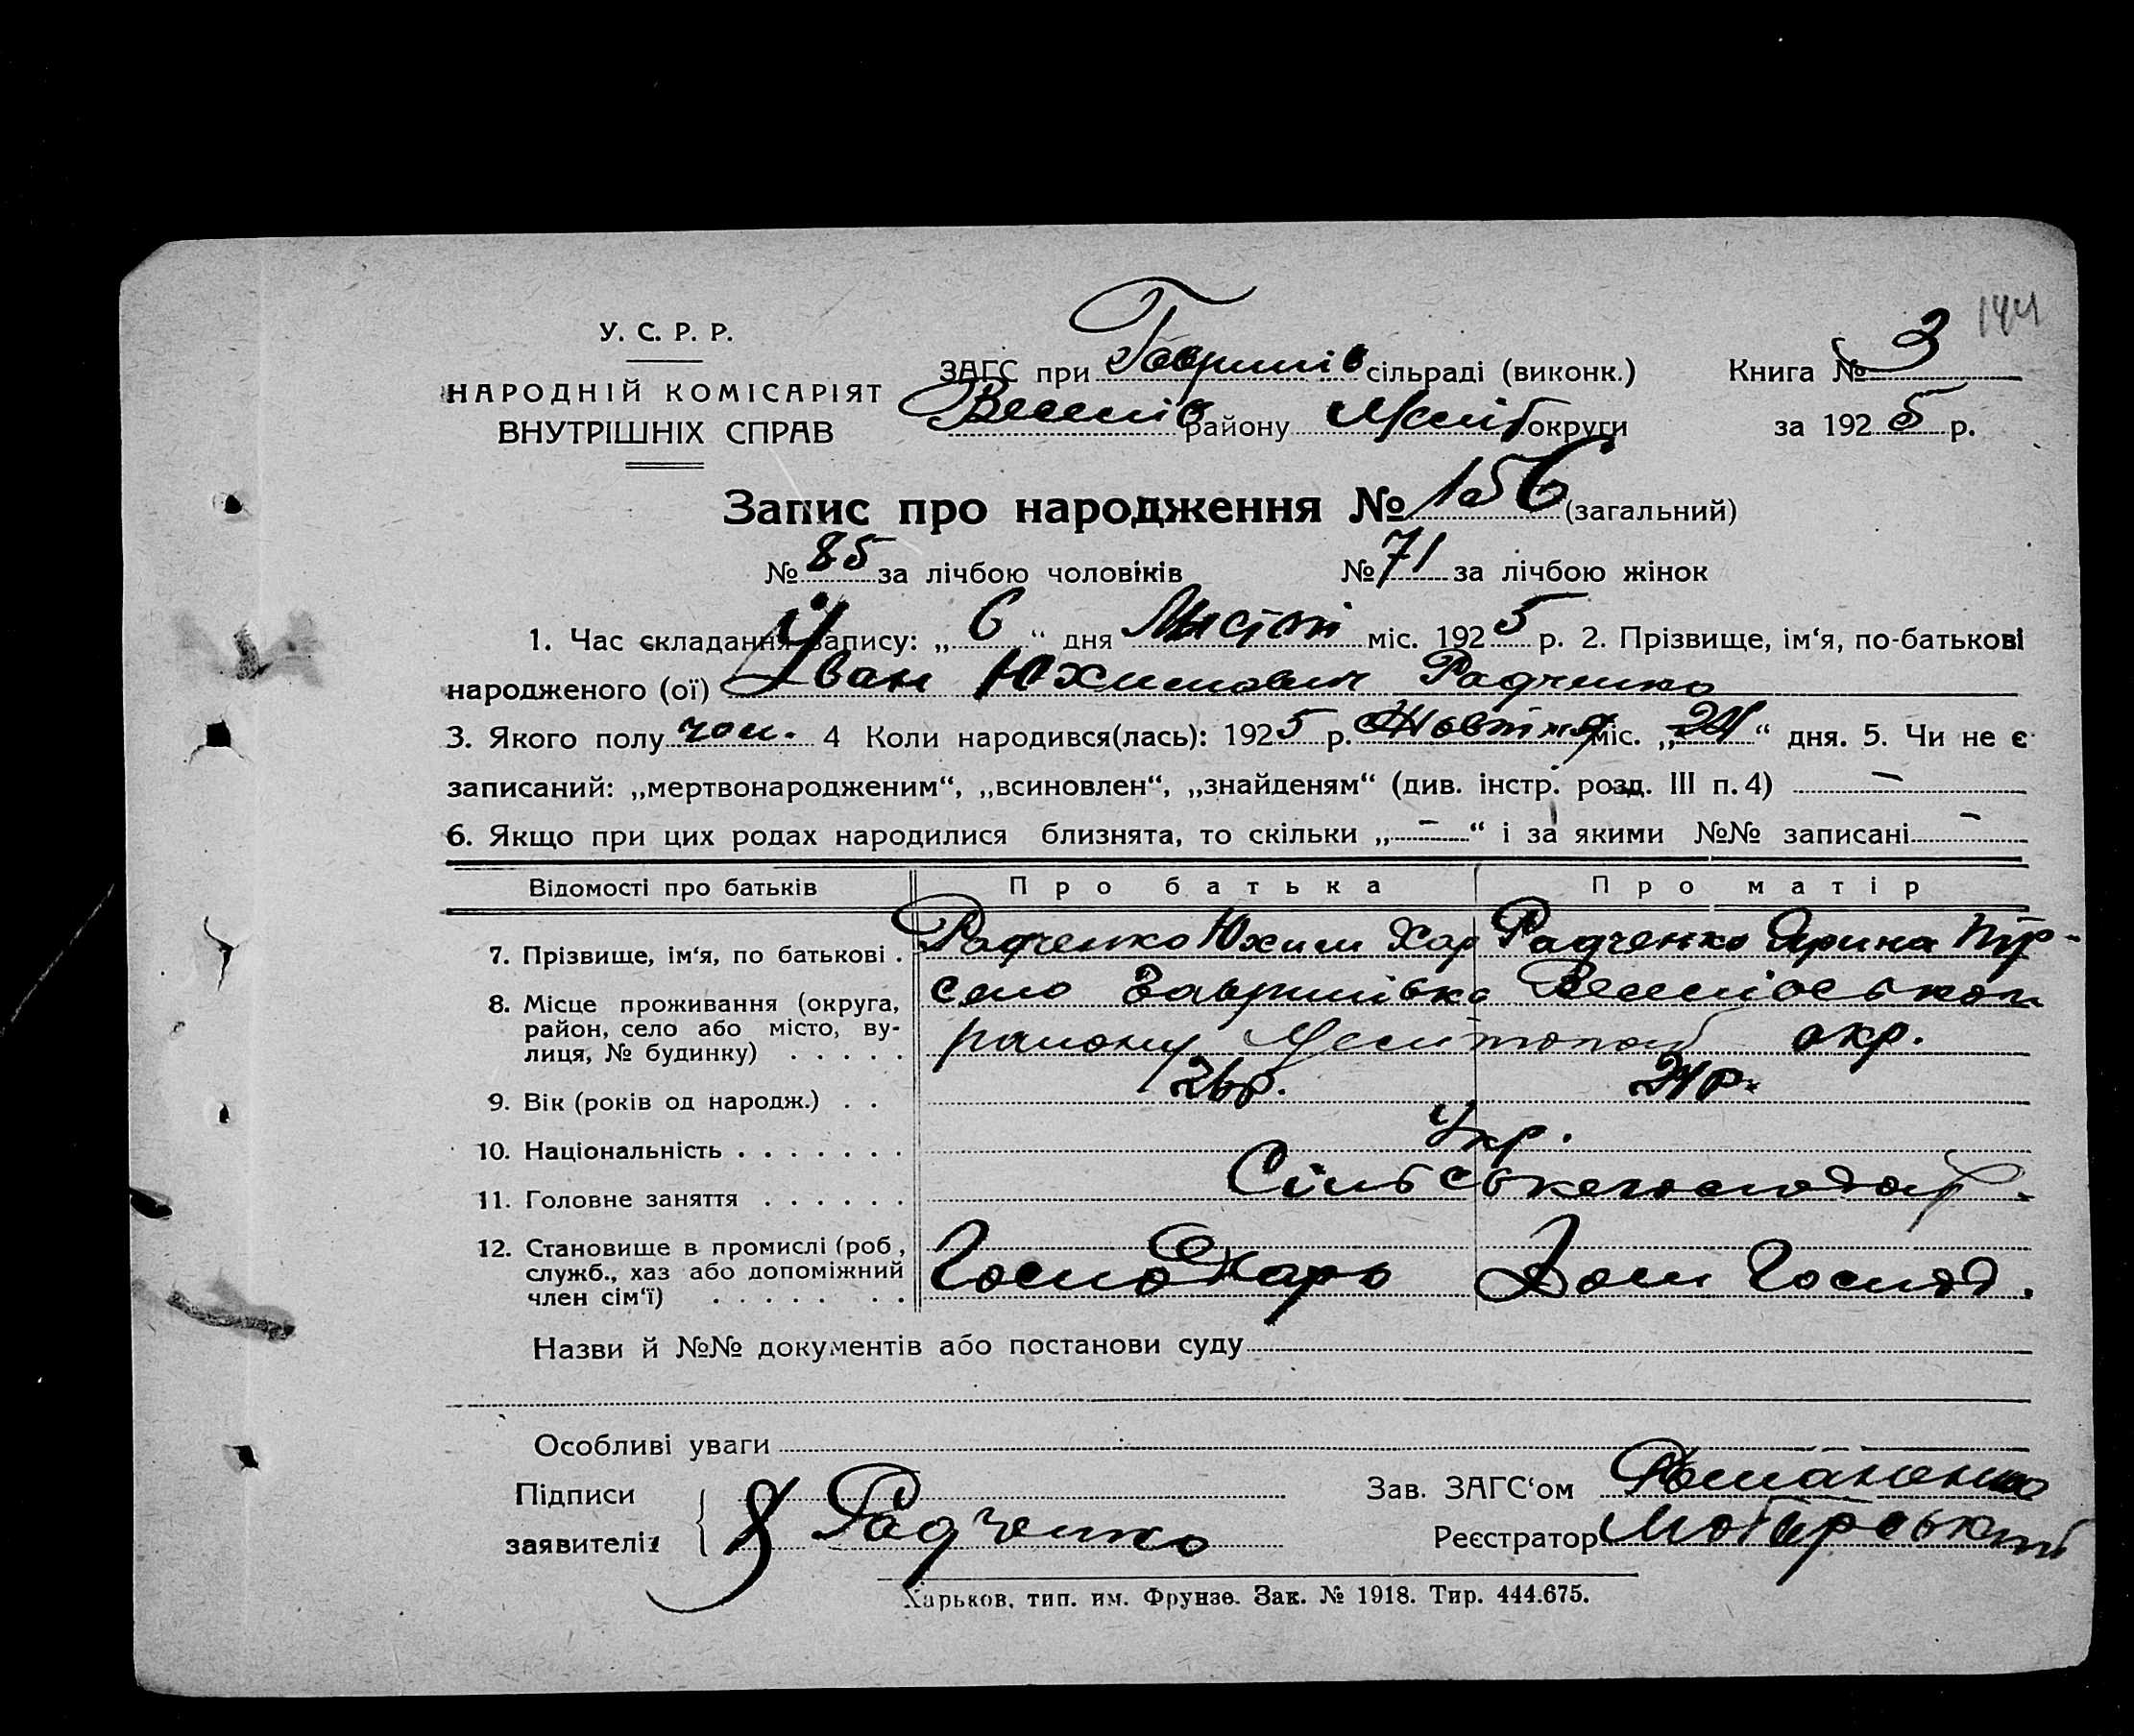 144
У. С. Р. Р.
НАРОДНІЙ КОМІСАРІЯТ
ВНУТРІШНІХ СПРАВ
ЗАГС при Гаврилів сільраді (виконк.) Книга № 3
Веселів району Меліт округи за 1925 р.
Запис про народження № 156 (загальний)
№ 85 за лічбою чоловіків № 71 за лічбою жінок
1. Час складання запису: „ 6 “ дня міс. 1925 р. 2. Прізвище, ім‘я, по-батькові
народженого (ої) Іван Юхимович Радченко
3. Якого полу чол. 4 Коли народився(лась): 1925 р. Жовтня міс. „ 24 “ дня. 5. Чи не є
записаний: „мертвонародженим“, „всиновлен“, „знайденям“ (див. інстр. розд. III п. 4) —
6. Якщо при цих родах народилися близнята, то скільки „ — “ і за якими №№ записані —
Відомості про батьків Про батька Про матір
7. Прізвище, ім‘я, по батькові . Радченко Юхим Хар Радченко Ярина
8. Місце проживання (округа, район, село або місто, вулиця, № будинку) . . . . . село Гаврилівка Веселівської
району окр.
9. Вік (років од народж.) . . 26 р. 24 р.
10. Національність . . . . . . . Укр.
11. Головне заняття . . . . . .
12. Становище в промислі (роб, служб., хаз або допоміжний член сім‘ї) . . . . . . . Господарь Дом Господ.
Назви й №№ документів або постанови суду
Особливі уваги
Підписи Зав. ЗАГС‘ом
заявителів { Радченко Реєстратор
Харьков, тип. им. Фрунзе. Зак. № 1918. Тир. 444.675.